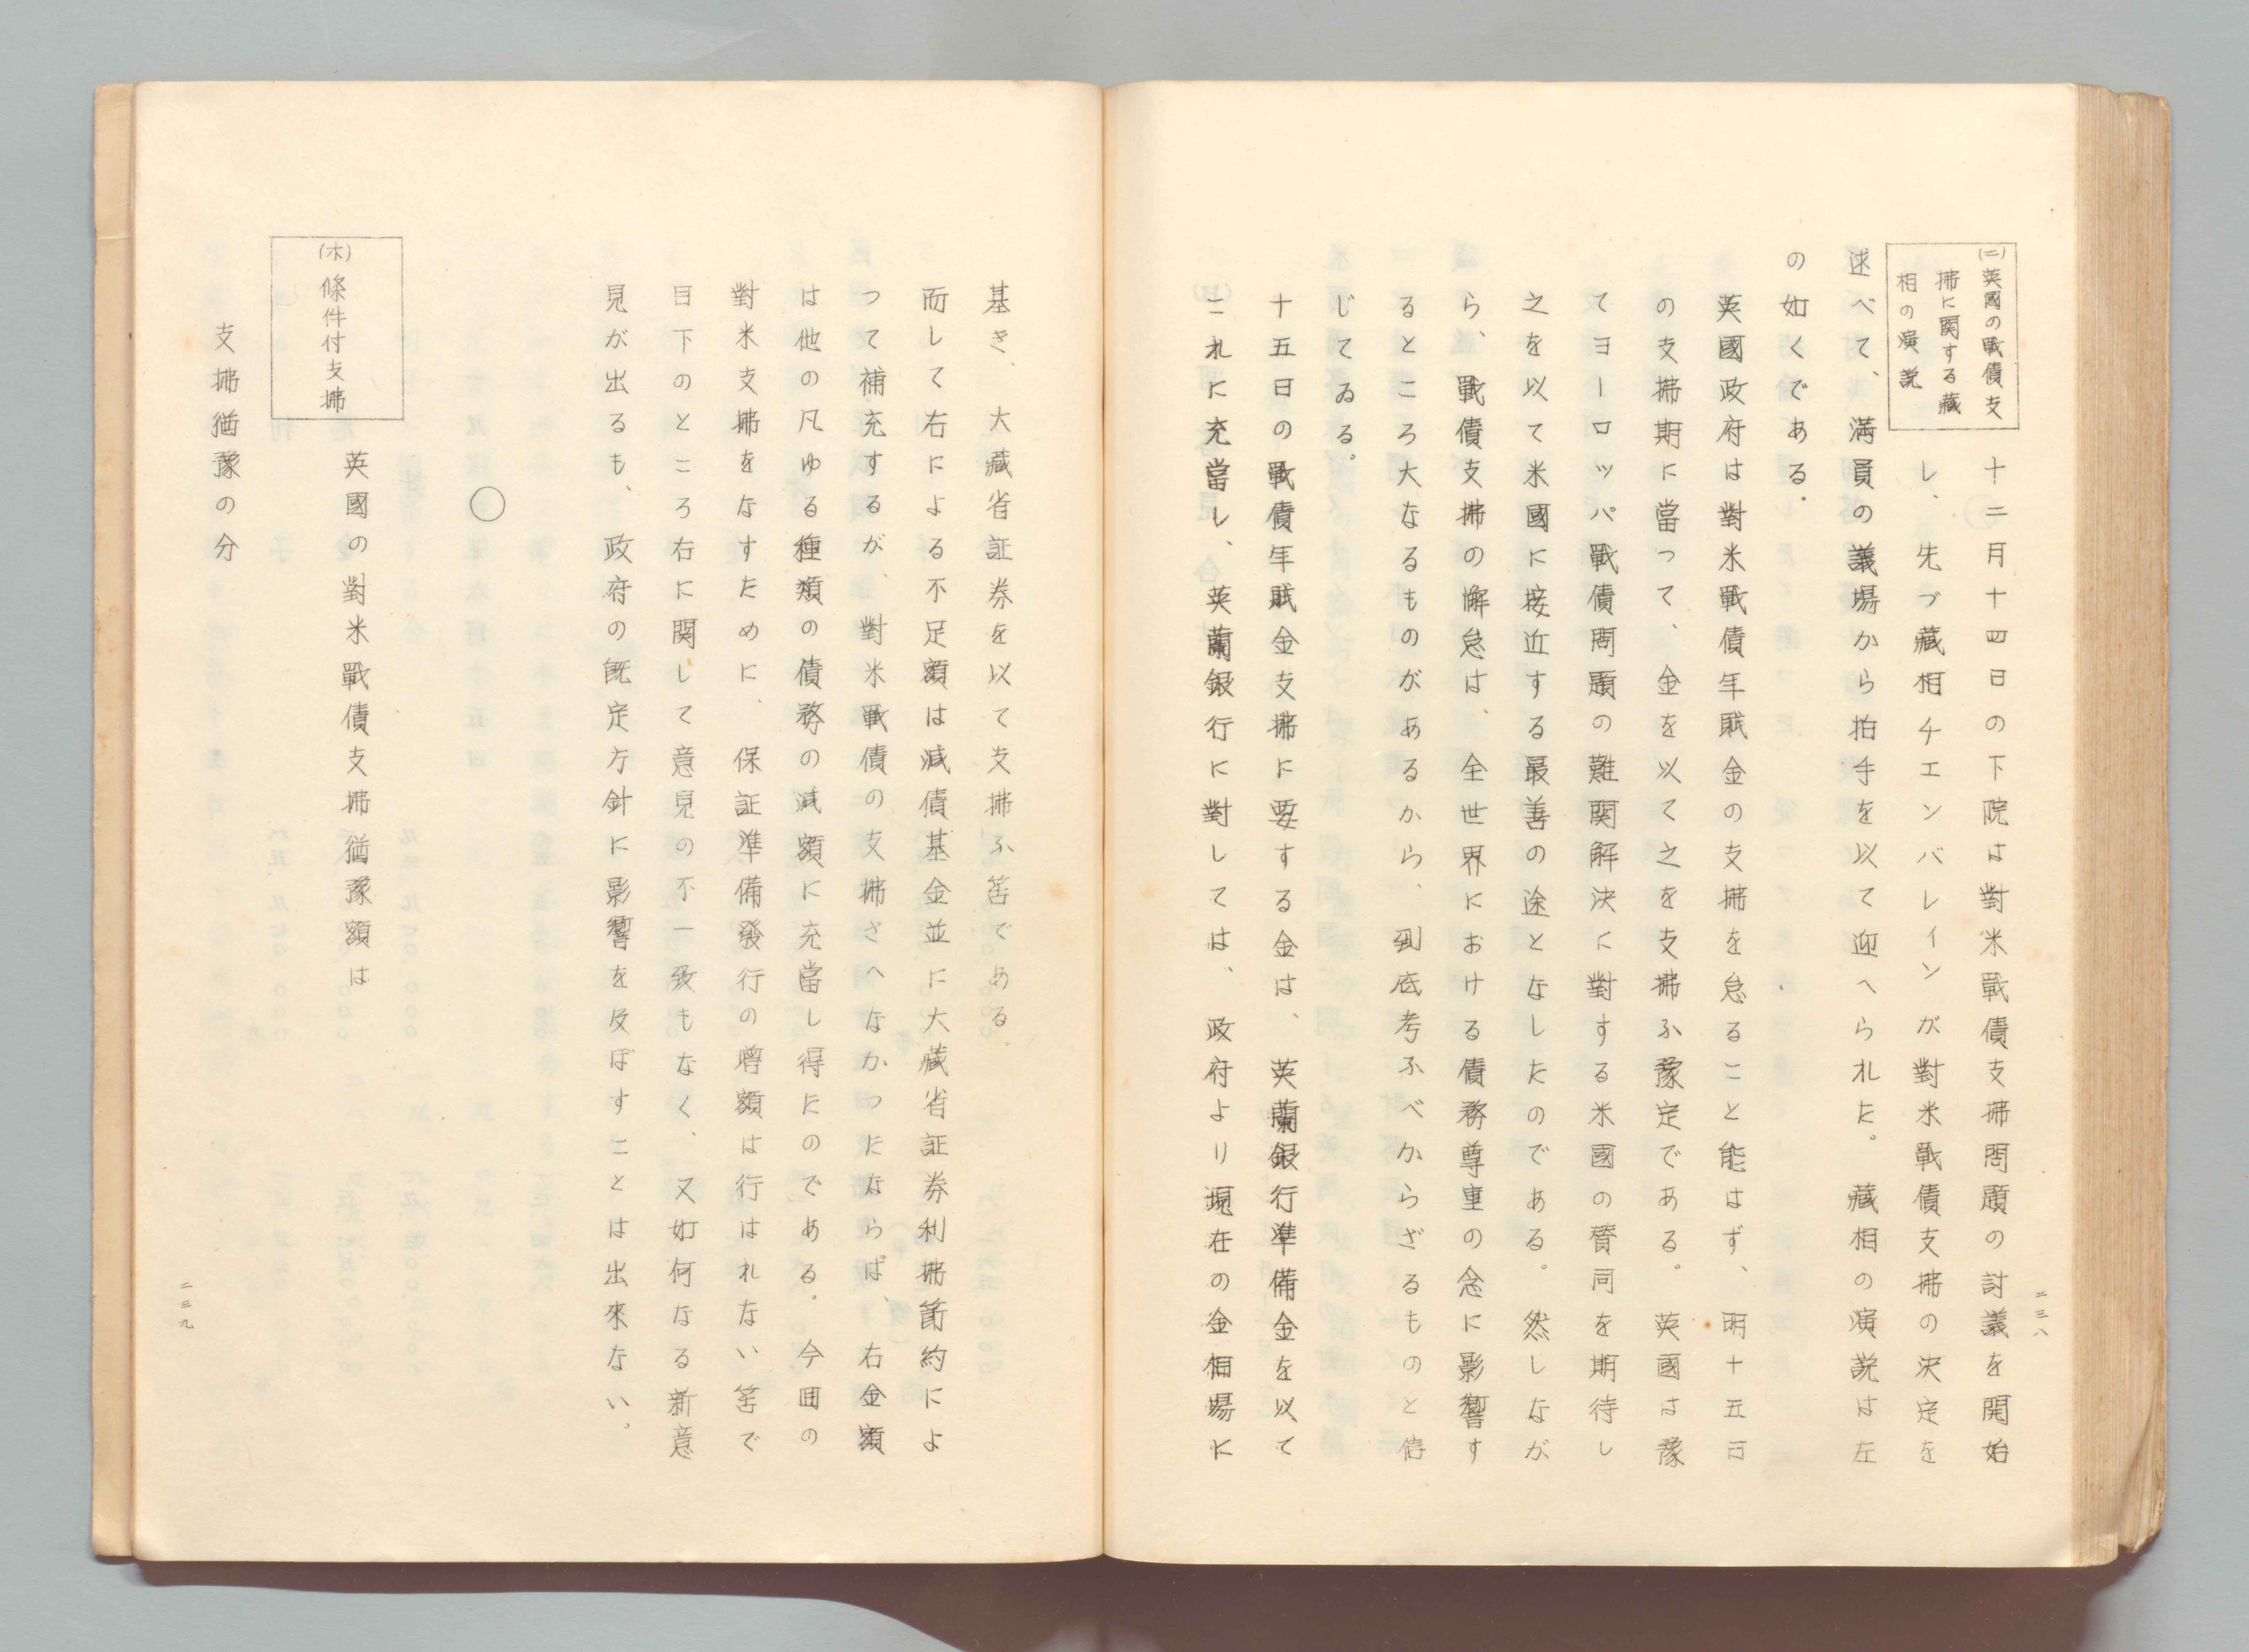 二三八
(ニ)英國の戰債支
拂に関する藏
相の演説
十二月十四日の下院は對米戰債支拂問題の討議を開始
し、先づ藏相チエンバレインが對米戰債支拂の決定を
述べて、満員の議場から拍手を以て迎へられた。藏相の演説は左
の如くである。
英國政府は對米戰債年賦金の支拂を怠ること能はず、明十五日
の支拂期に當つて、金を以て之を支拂ふ豫定である。英國は豫
てヨーロッパ戰債問題の難関解決に對する米國の賛同を期待し
之を以て米國に接近する最善の途となしたのである。然しなが
ら、戰債支拂の懈怠は、全世界における債務尊重の念に影響す
るところ大なるものがあるから、到底考ふべからざるものと信
じてゐる。
十五日の戰債年賦金支拂に要する金は、英蘭銀行準備金を以て
これに充當し、英蘭銀行に對しては、政府より現在の金相場に
基き、大藏省証券を以て支拂ふ筈である。
而して右による不足額は減債基金並に大藏省証券利拂節約によ
つて補充するが、對米戰債の支拂さへなかつたならば、右金額
は他の凡ゆる種類の債務の減額に充當し得たのである。今囬の
對米支拂をなすために、保証準備發行の增額は行はれない筈で
目下のところ右に関して意見の不一致もなく、又如何なる新意
見が出るも、政府の既定方針に影響を及ぼすことは出來ない。
○
(ホ)條件付支拂
英國の對米戰債支拂猶豫額は
支拂猶豫の分
二三九